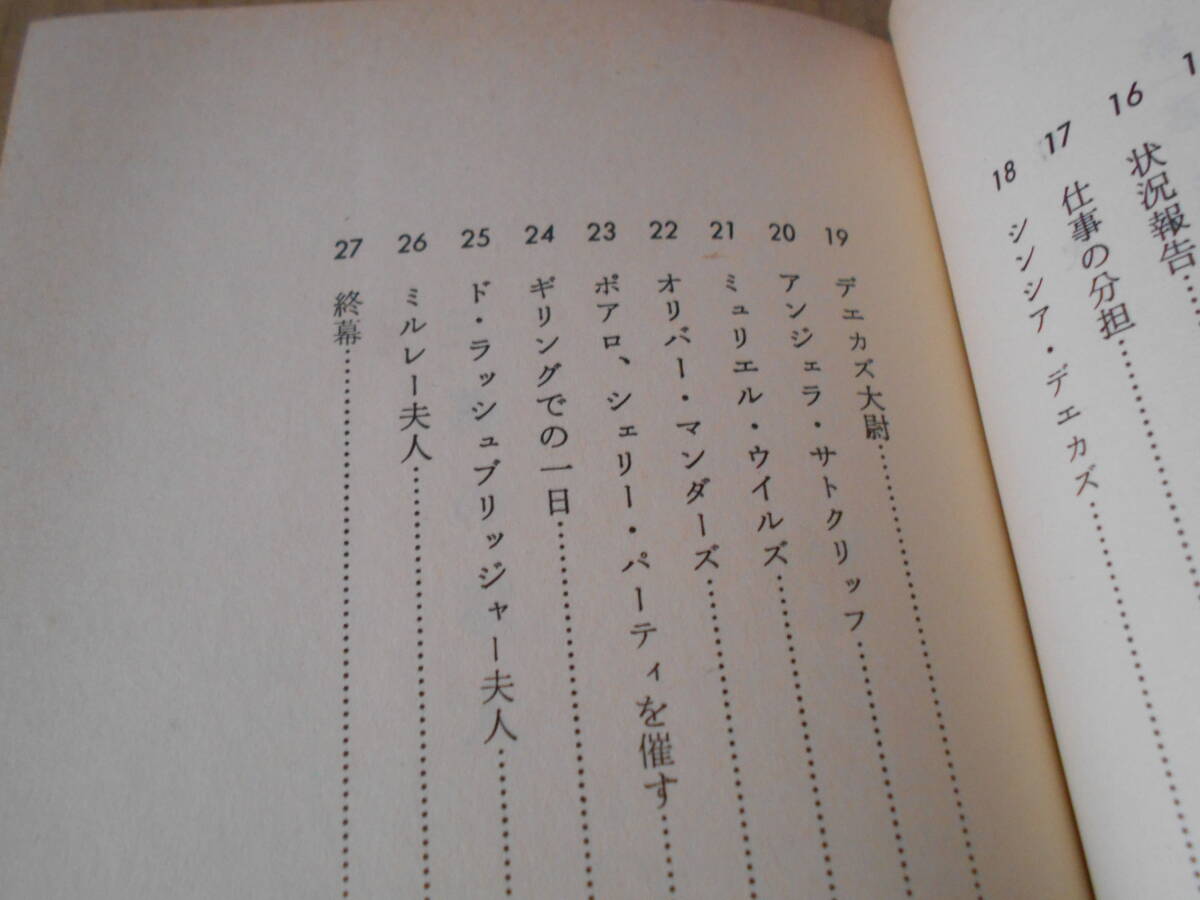 16 状況報告
17 仕事の分担
18 シンシア・デェカズ
19 デェカズ大尉
20 アンジェラ・サトクリッフ
21 ミュリエル・ウイルズ
22 オリバー・マンダーズ
23 ポアロ、シェリー・パーティを催す
24 ギリングでの一日
25 ド・ラッシュブリッジャー夫人
26 ミルレー夫人
27 終幕